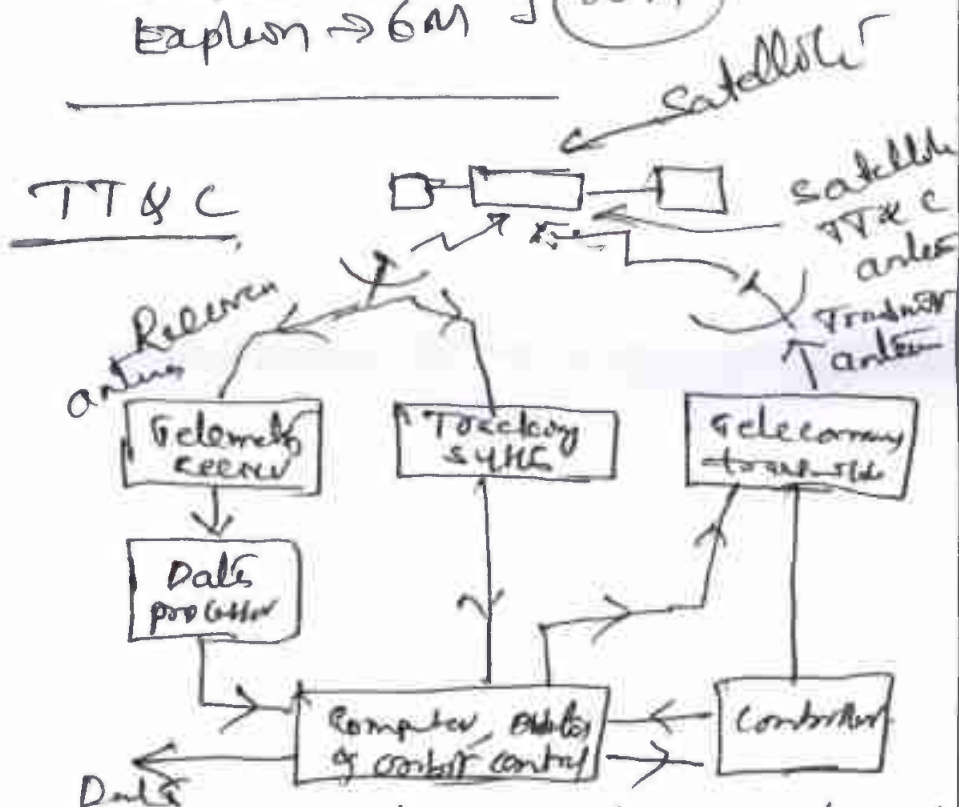 Explain → 6M
Satellite
TT & C
satellite
TT & C
antenna
Receiver
antenna
Transmit
antenna
Telemetry
receiver
Tracking
system
Telecommand
transmitter
Data
processor
Computer
of orbit control
Controller
Data